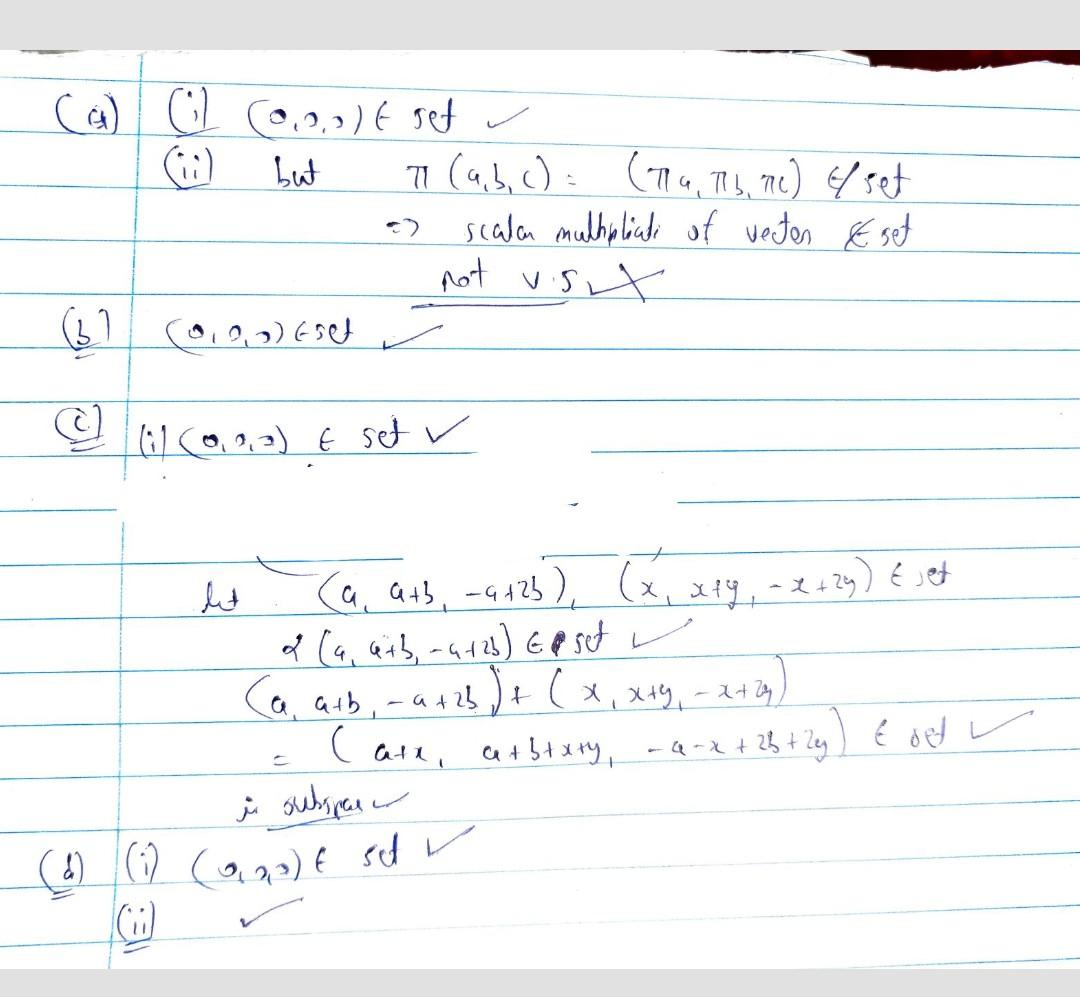 (a) (i) (0,0,0) ∈ set ✓
(ii) but π (a,b,c) = (πa, πb, πc) ∉ set
=> scalar multiplicati of vector ∉ set
not v.s ✗
(b) (0,0,0) ∈ set ✓
(c) (i) (0,0,0) ∈ set ✓
let (a, a+b, -a+2b), (x, x+y, -x+2y) ∈ set
α (a, a+b, -a+2b) ∈ set ✓
(a, a+b, -a+2b) + (x, x+y, -x+2y)
= (a+x, a+b+x+y, -a-x+2b+2y) ∈ set ✓
is subspace ✓
(d) (i) (0,0,0) ∈ set ✓
(ii) ✓